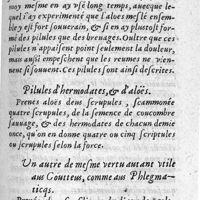 moy mesme en ay vsé long temps, auecque le-
quel i'ay experimenté que l'aloes meslé ensem-
ble y est fort souuerain, & si en ay plustost for-
mé des pilules que des breuuages. Outre que ces
pilules n'appaisent point seulement la douleur,
mais aussi empeschent que les reumes ne vien-
nent si souuent. Ces pilules sont ainsi descrites.
Pilules d'hermodates, & d'aloës.
Prenés aloës deus scrupules, scammonée
quatre scrupules, de la semence de coucombre
sauuage, & des hermodates de chacun demie
once, qu'on en donne quatre ou cinq scriptules
ou scrupules selon la force.
Un autre de mesme vertu autant vtile
aus Goutteus, comme aus Phlegma-
ticqs.